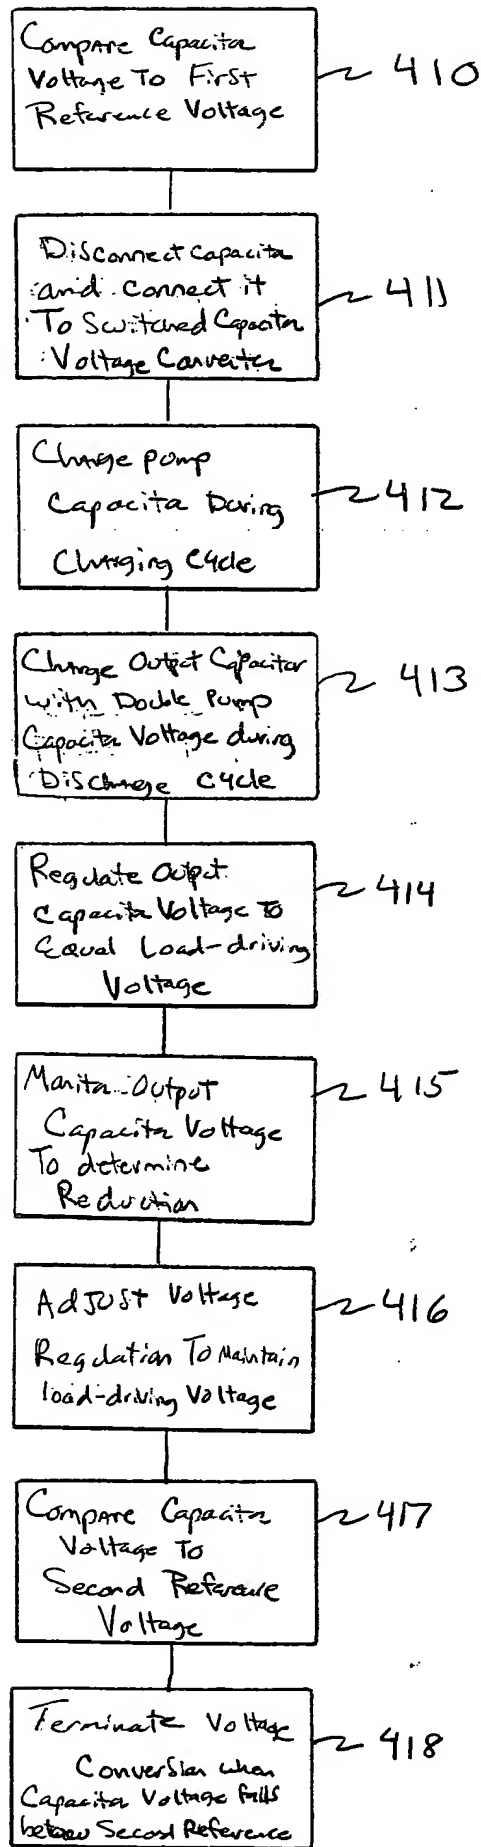 Compare Capacitor
Voltage To First
Reference Voltage
410
Disconnect Capacitor
and connect it
To Switched Capacitor
Voltage Converter
411
Charge pump
Capacitor During
Charging Cycle
412
Charge Output Capacitor
with Double Pump
Capacitor Voltage during
Discharge Cycle
413
Regulate Output
Capacitor Voltage to
Equal Load-driving
Voltage
414
Monitor Output
Capacitor Voltage
To determine
Reduction
415
Adjust Voltage
Regulation To Maintain
load-driving Voltage
416
Compare Capacitor
Voltage To
Second Reference
Voltage
417
Terminate Voltage
Conversion when
Capacitor Voltage falls
below Second Reference
418